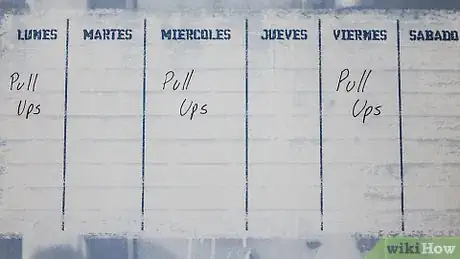 LUNES MARTES MIERCOLES JUEVES VIERNES SABADO
Pull Pull Pull
Ups Ups Ups
wikiHow